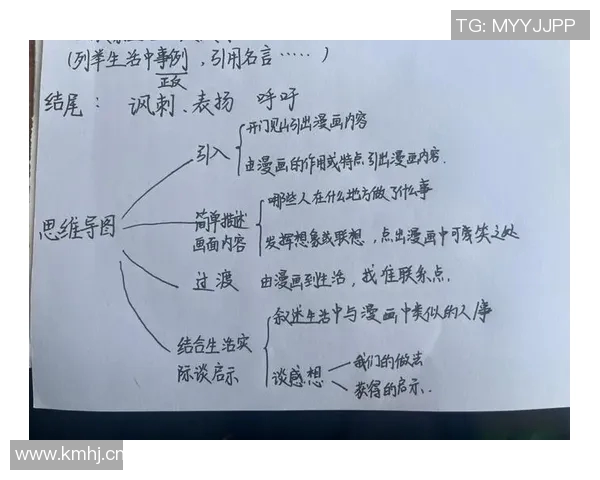 TG: MYYJJPP
(列举生活中事例，引用名言……)
正反
结尾： 讽刺、表扬 呼吁
思维导图
引入
开门见山引出漫画内容
由漫画的作用或特点引出漫画内容.
简单描述
画面内容
哪些人在什么地方做了什么事
发挥想象或联想，点出漫画中可笑之处
过渡 由漫画到生活，找准联系点.
结合生活实
际谈启示
叙述生活中与漫画中类似的人事
谈感想
我们的做法
获得的启示.
www.kmhj.cn